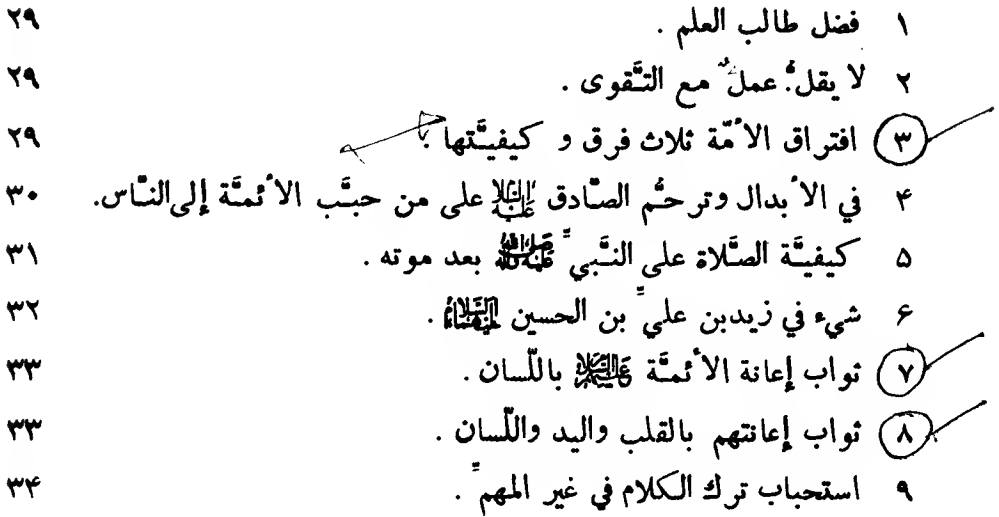 ١ فضل طالب العلم . ٢٩
٢ لا يقلُّ عملٌ مع التَّقوى . ٢٩
٣ افتراق الأمّة ثلاث فرق و كيفيَّتها . ٢٩
۴ في الأبدال وترحُّم الصّادق عليه السلام على من حبَّب الأئمَّة إلى النَّاس. ٣٠
۵ كيفيَّة الصَّلاة على النَّبيِّ صلى الله عليه وآله بعد موته . ٣١
۶ شيء في زيدبن عليِّ بن الحسين عليهما السلام . ٣٢
٧ ثواب إعانة الأئمَّة عليهم السلام باللّسان . ٣٣
٨ ثواب إعانتهم بالقلب واليد واللّسان . ٣٣
٩ استحباب ترك الكلام في غير المهمِّ . ٣۴